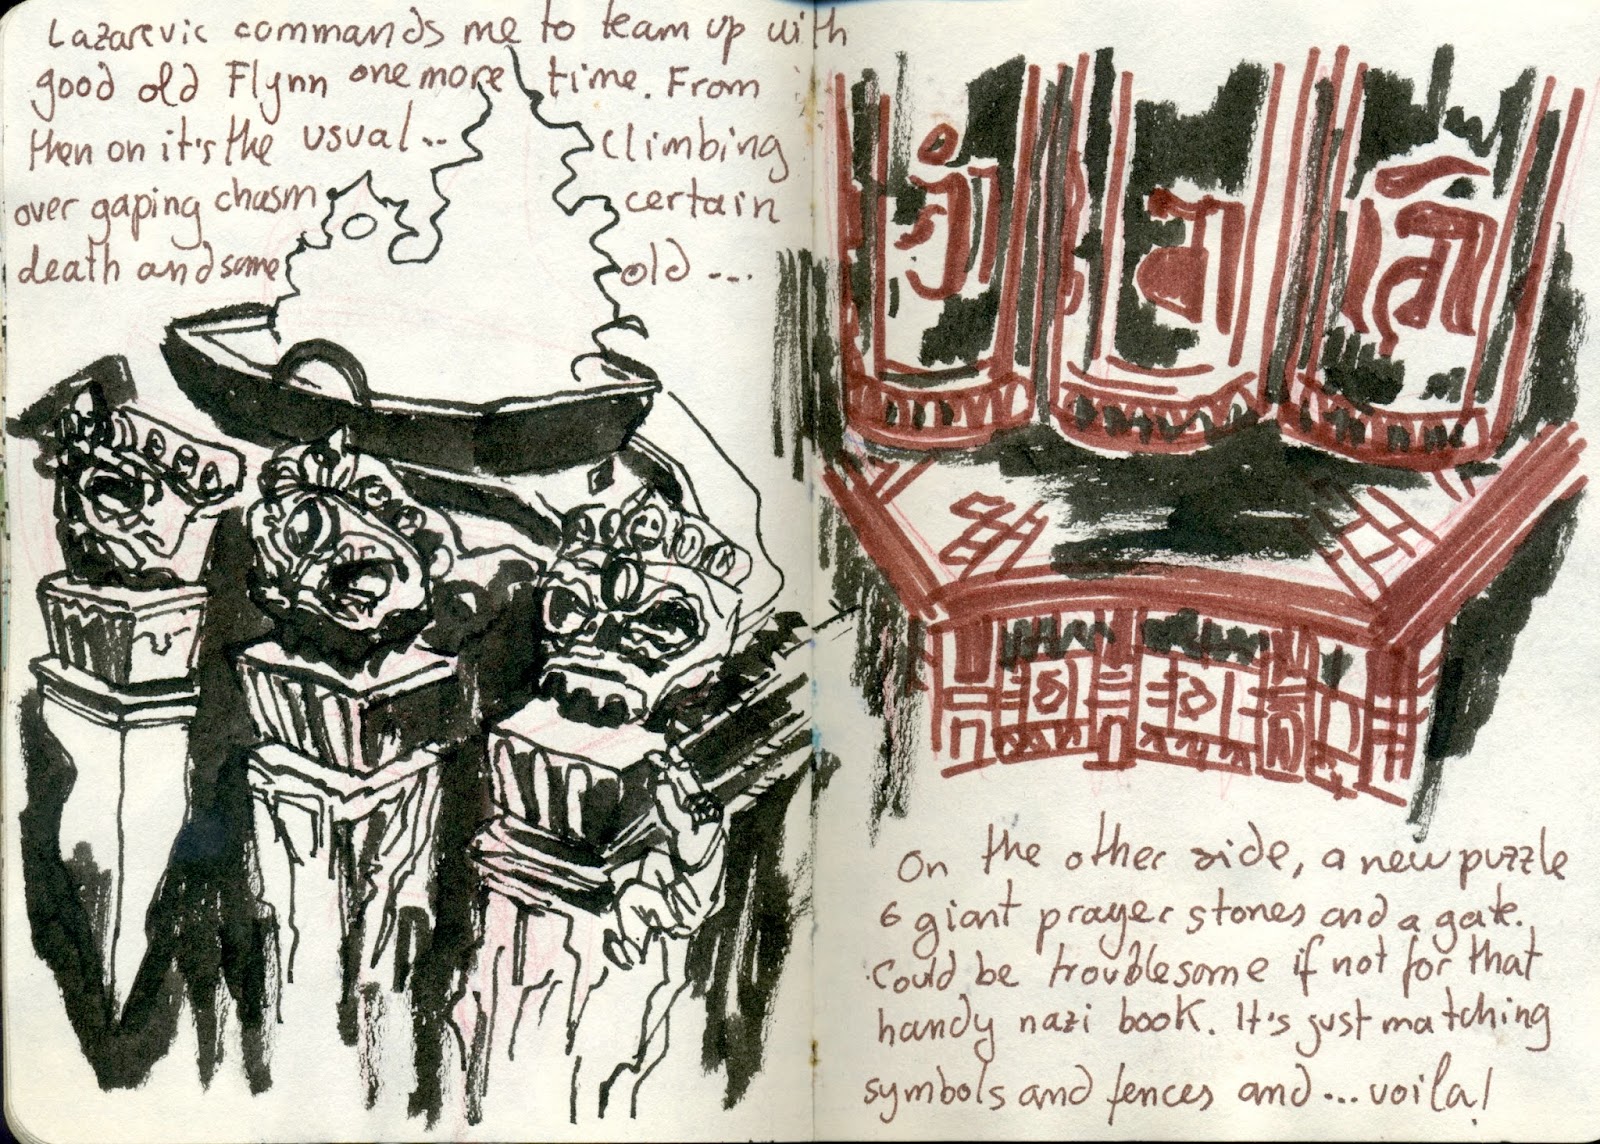 Lazarevic commands me to team up with
good old Flynn one more time. From
then on it's the usual... Climbing
over gaping chasm certain
death and some old ...
On the other side, a new puzzle
6 giant prayer stones and a gate.
Could be troublesome if not for that
handy nazi book. It's just matching
symbols and fences and... voila!